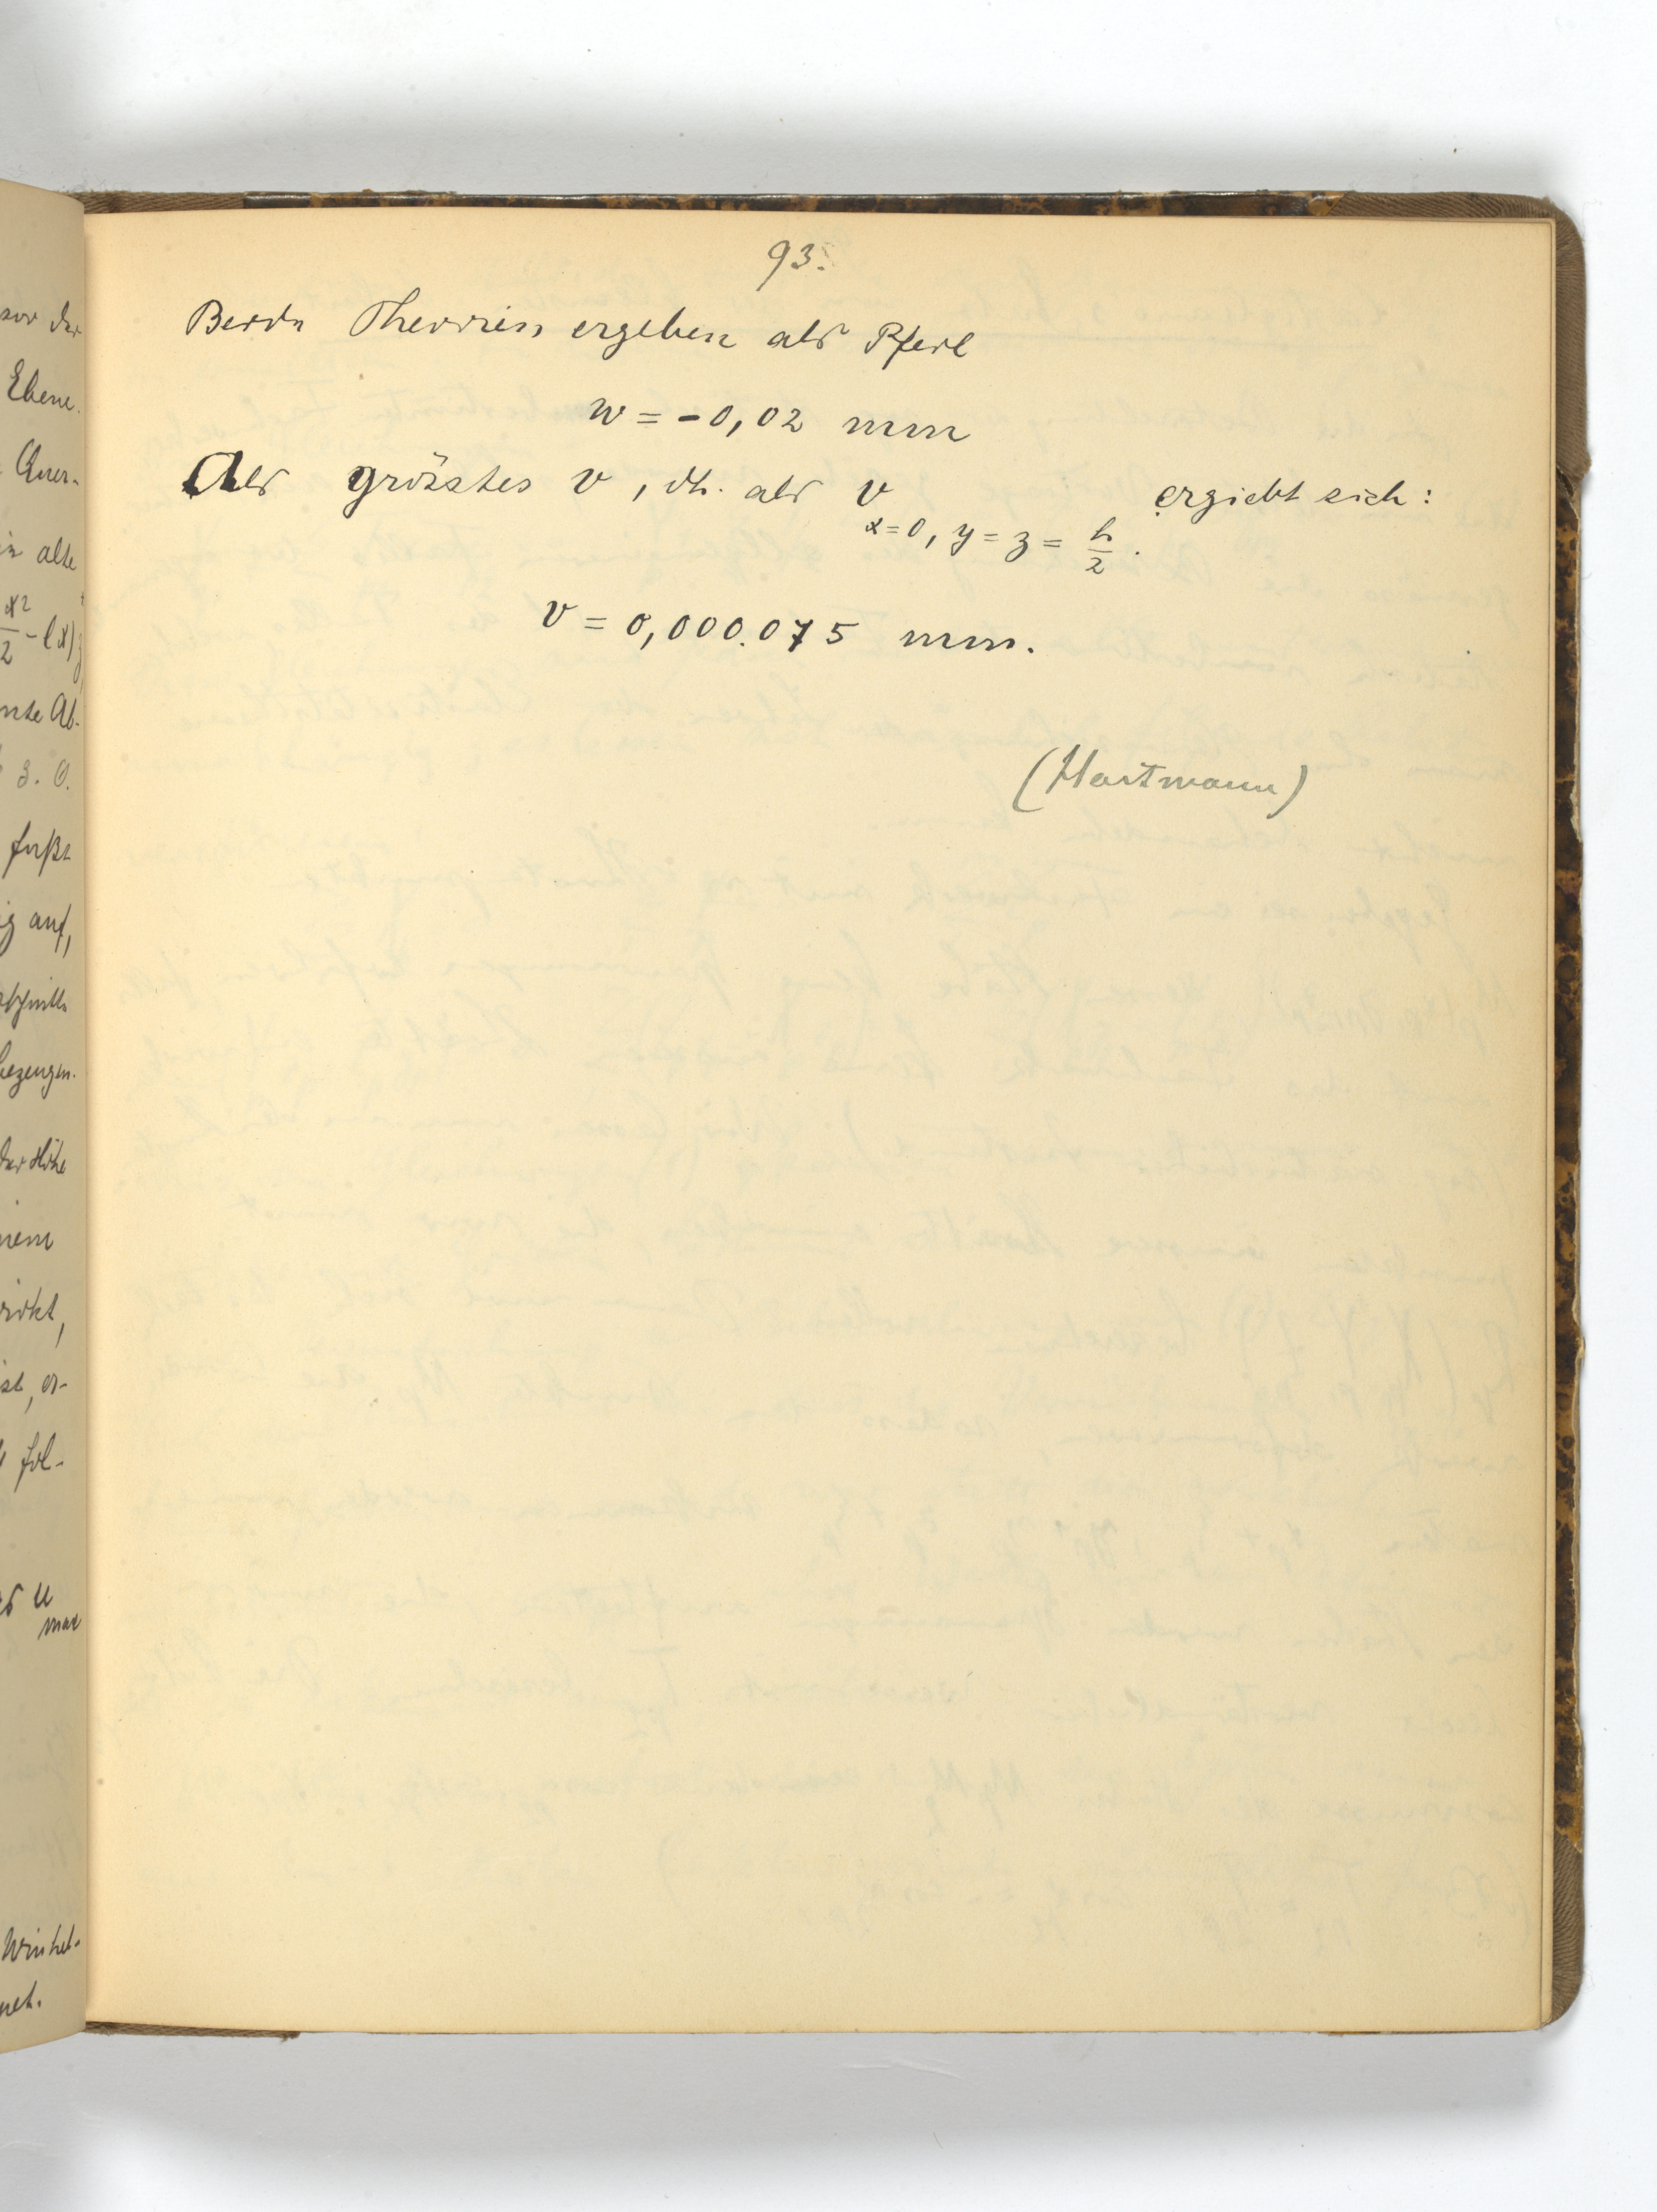 93.
Beide Theorien ergeben als Pfeil
w = -0,02 mm
Als grösstes v, dh. als v x=0, y=z= h/2. ergiebt sich:
v = 0,000.075 mm.
(Hartmann)
Ebene.
Quer-
x²/2 - lx)
nte Ab-
z. B.
fußt
ig auf,
bezeugen.
der Höhe
nem
wirkt,
ist, er-
fol-
u max
Winkel-
net.